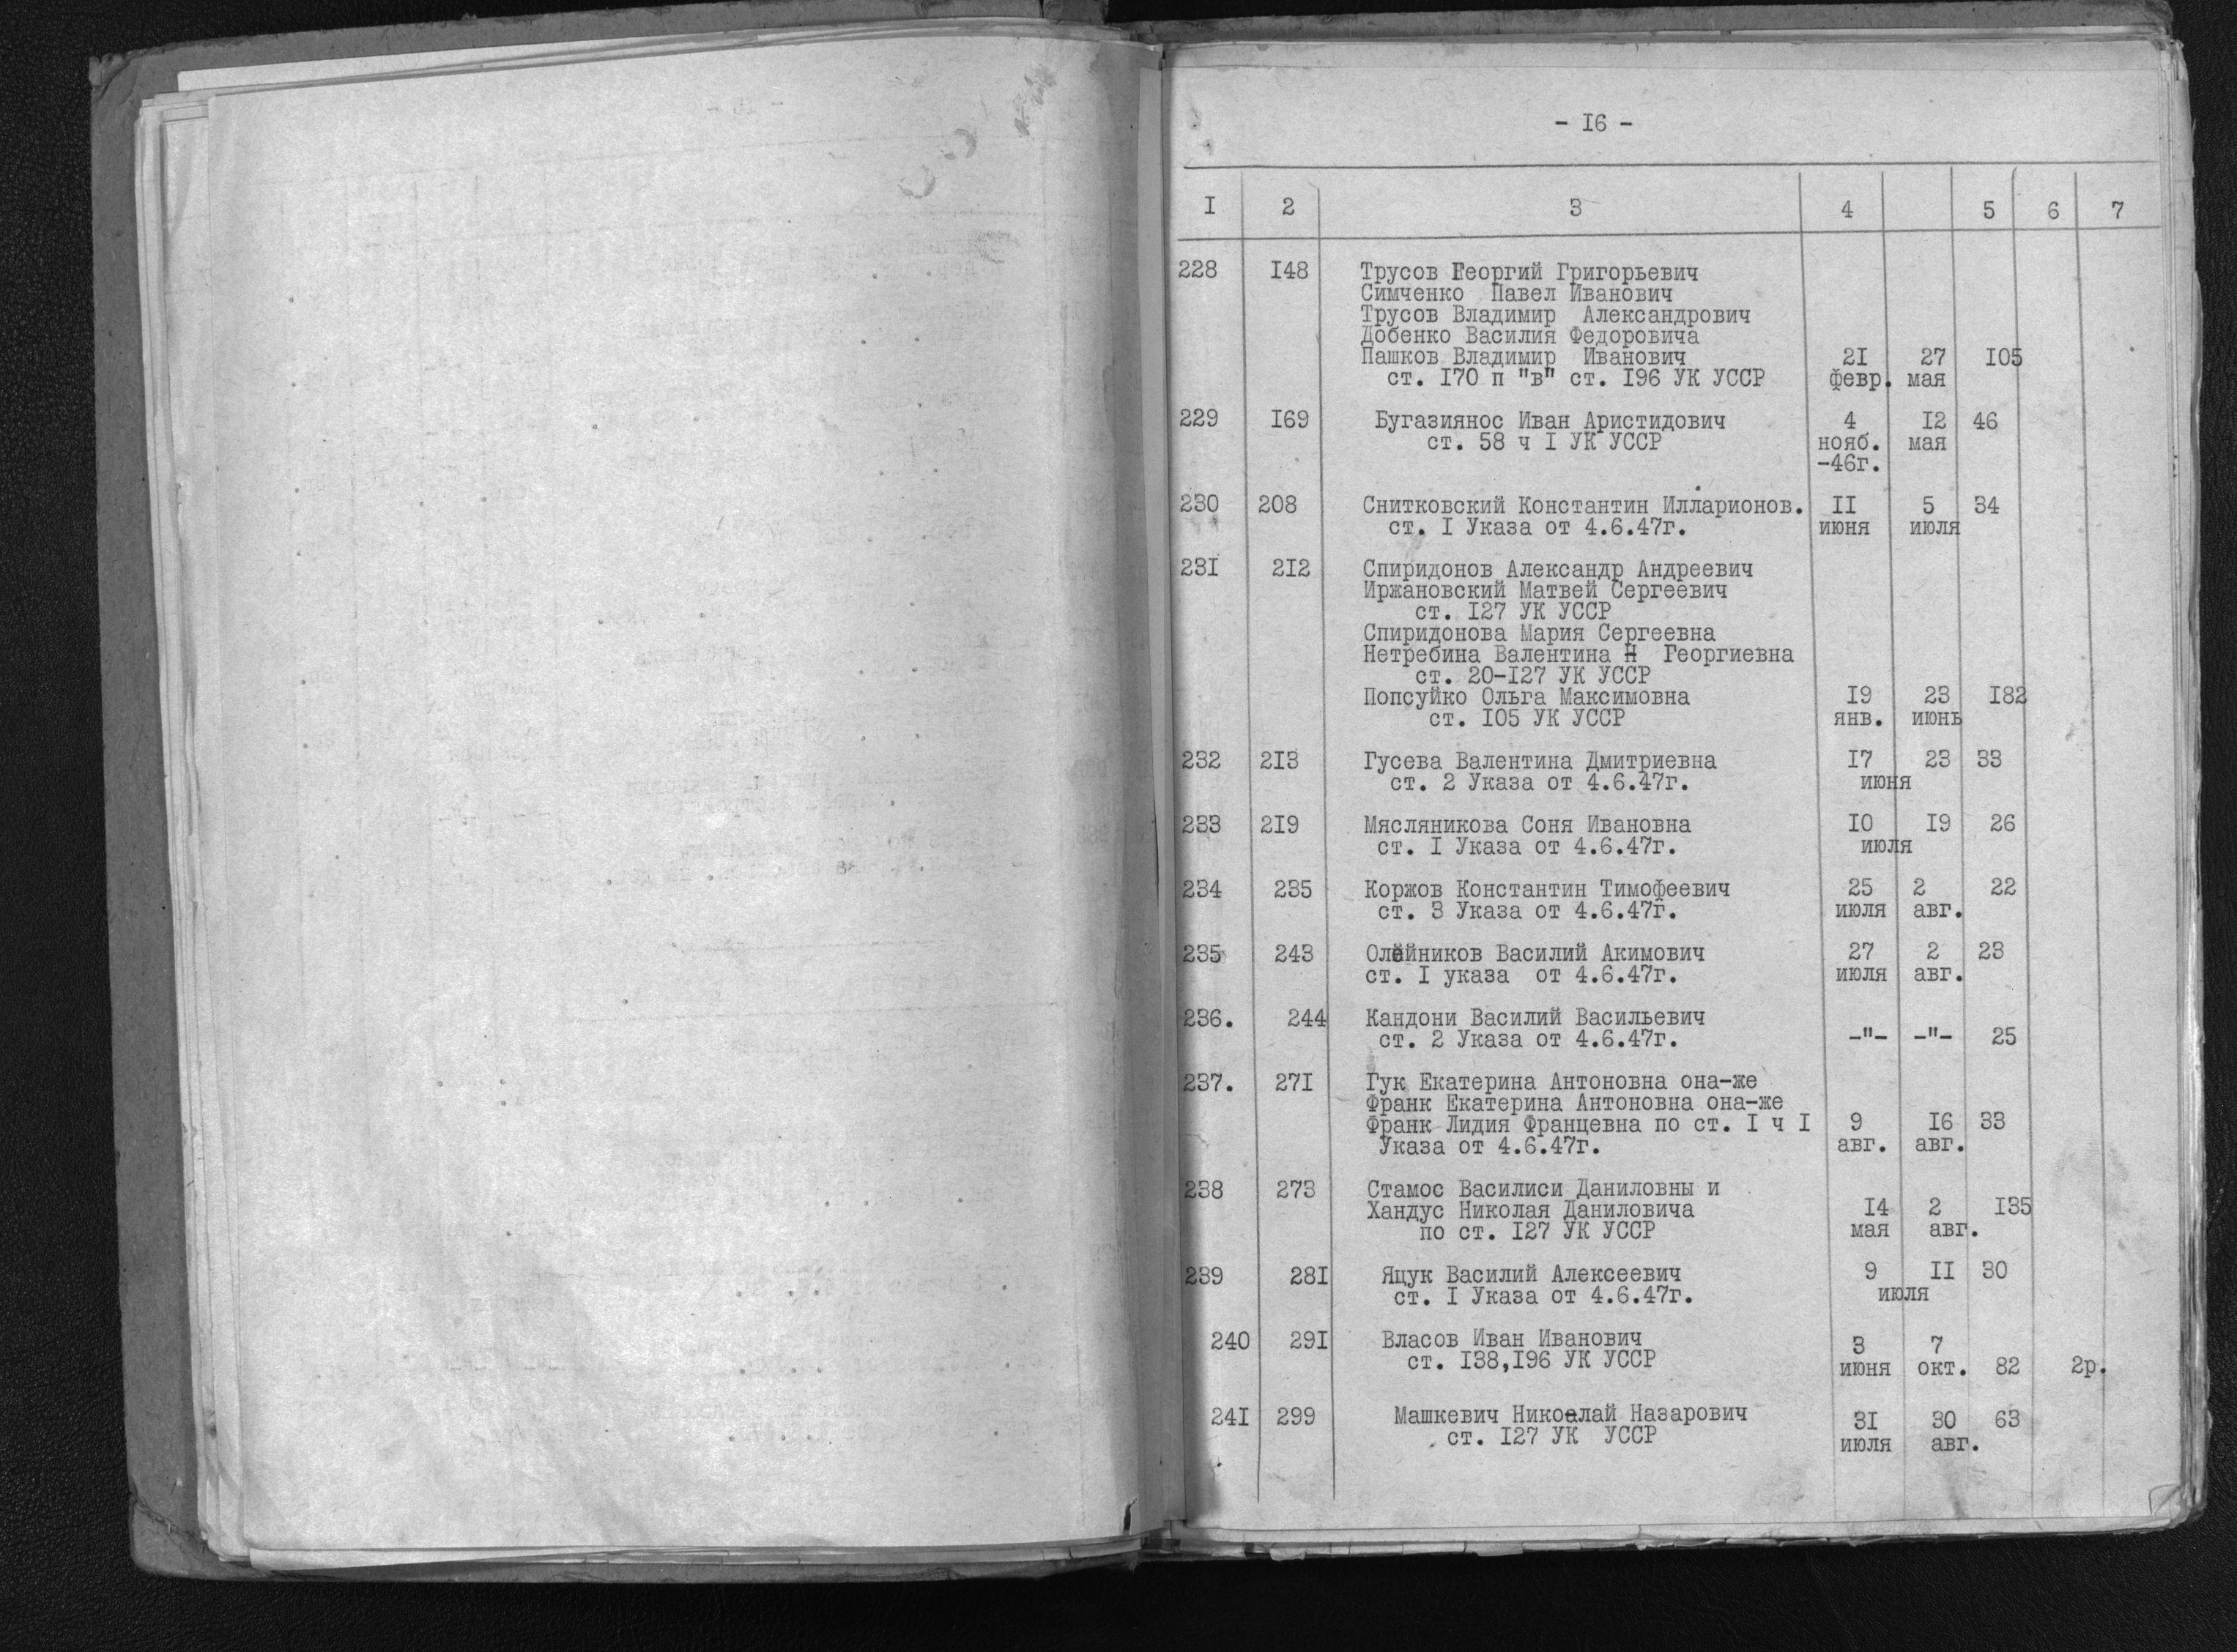 - I6 -
I 2 3 4 5 6 7
228 I48 Трусов Георгий Григорьевич
Симченко Павел Иванович
Трусов Владимир Александрович
Добенко Василия Федоровича
Пашков Владимир Иванович 2I 27 I05
ст. I70 п "в" ст. I96 УК УССР февр. мая
229 I69 Бугазиянос Иван Аристидович 4 I2 46
ст. 58 ч I УК УССР нояб. мая
-46г.
230 208 Снитковский Константин Илларионов. II 5 34
ст. I Указа от 4.6.47г. июня июля
23I 2I2 Спиридонов Александр Андреевич
Иржановский Матвей Сергеевич
ст. I27 УК УССР
Спиридонова Мария Сергеевна
Нетребина Валентина Н Георгиевна
ст. 20-I27 УК УССР
Попсуйко Ольга Максимовна I9 23 I82
ст. I05 УК УССР янв. июнь
232 2I3 Гусева Валентина Дмитриевна I7 23 33
ст. 2 Указа от 4.6.47г. июня
233 2I9 Мясляникова Соня Ивановна I0 I9 26
ст. I Указа от 4.6.47г. июля
234 235 Коржов Константин Тимофеевич 25 2 22
ст. 3 Указа от 4.6.47г. июля авг.
235 243 Олейников Василий Акимович 27 2 23
ст. I указа от 4.6.47г. июля авг.
236. 244 Кандони Василий Васильевич
ст. 2 Указа от 4.6.47г. -"- -"- 25
237. 27I Гук Екатерина Антоновна она-же
Франк Екатерина Антоновна она-же
Франк Лидия Францевна по ст. I ч I 9 I6 33
Указа от 4.6.47г. авг. авг.
238 273 Стамос Василиси Даниловны и
Хандус Николая Даниловича I4 2 I35
по ст. I27 УК УССР мая авг.
239 28I Яцук Василий Алексеевич 9 II 30
ст. I Указа от 4.6.47г. июля
240 29I Власов Иван Иванович 3 7
ст. I38,I96 УК УССР июня окт. 82 2р.
24I 299 Машкевич Никоалай Назарович 3I 30 63
ст. I27 УК УССР июля авг.